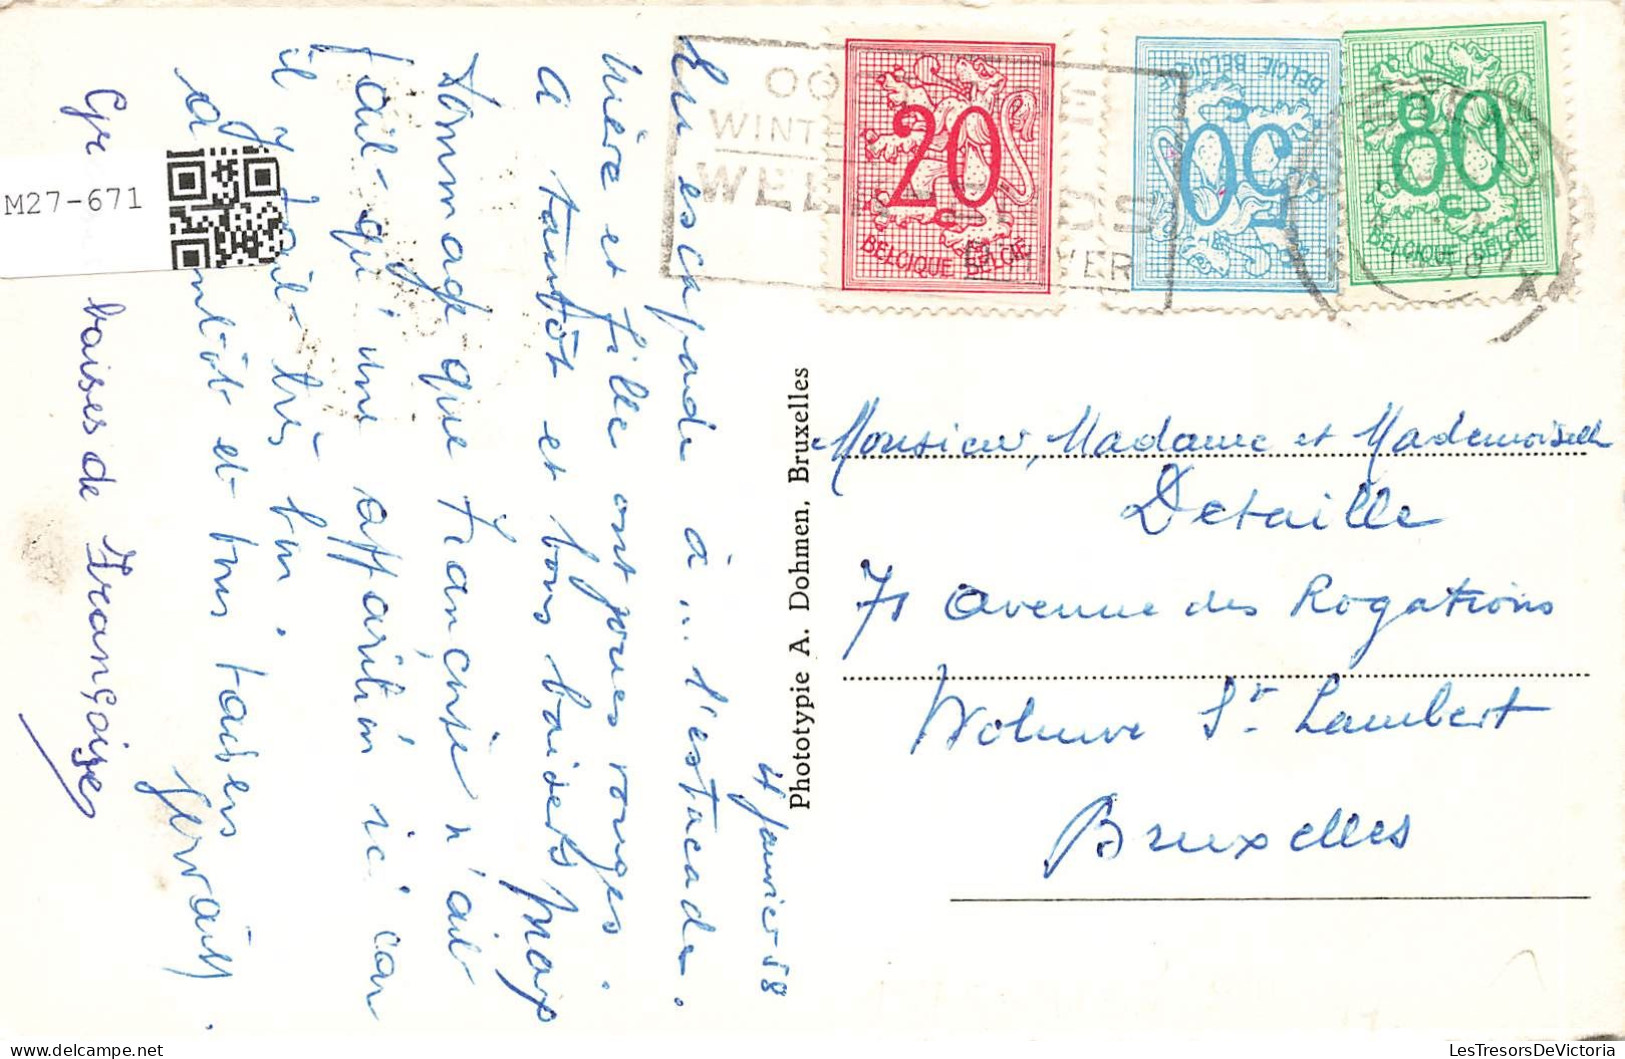 4 Janvier 58
En escapade à... l'estacade.
Mère et fille ont joues rouges.
A tantôt et bons baisers Max
Dommage que Françoise n'ait
fait qu'une apparition ici car
il y fait très bon.
A bientôt et bons baisers
Gr baises de Françoise
M27-671
Phototypie A. Dohmen, Bruxelles
WINTER
20 c
BELGIQUE BELGIE
50 c
BELGIE BELGIQUE
80 c
BELGIQUE BELGIE
Monsieur, Madame et Mademoiselle
Detaille
71 avenue des Rogations
Woluwe St Lambert
Bruxelles
LesTresorsDeVictoria